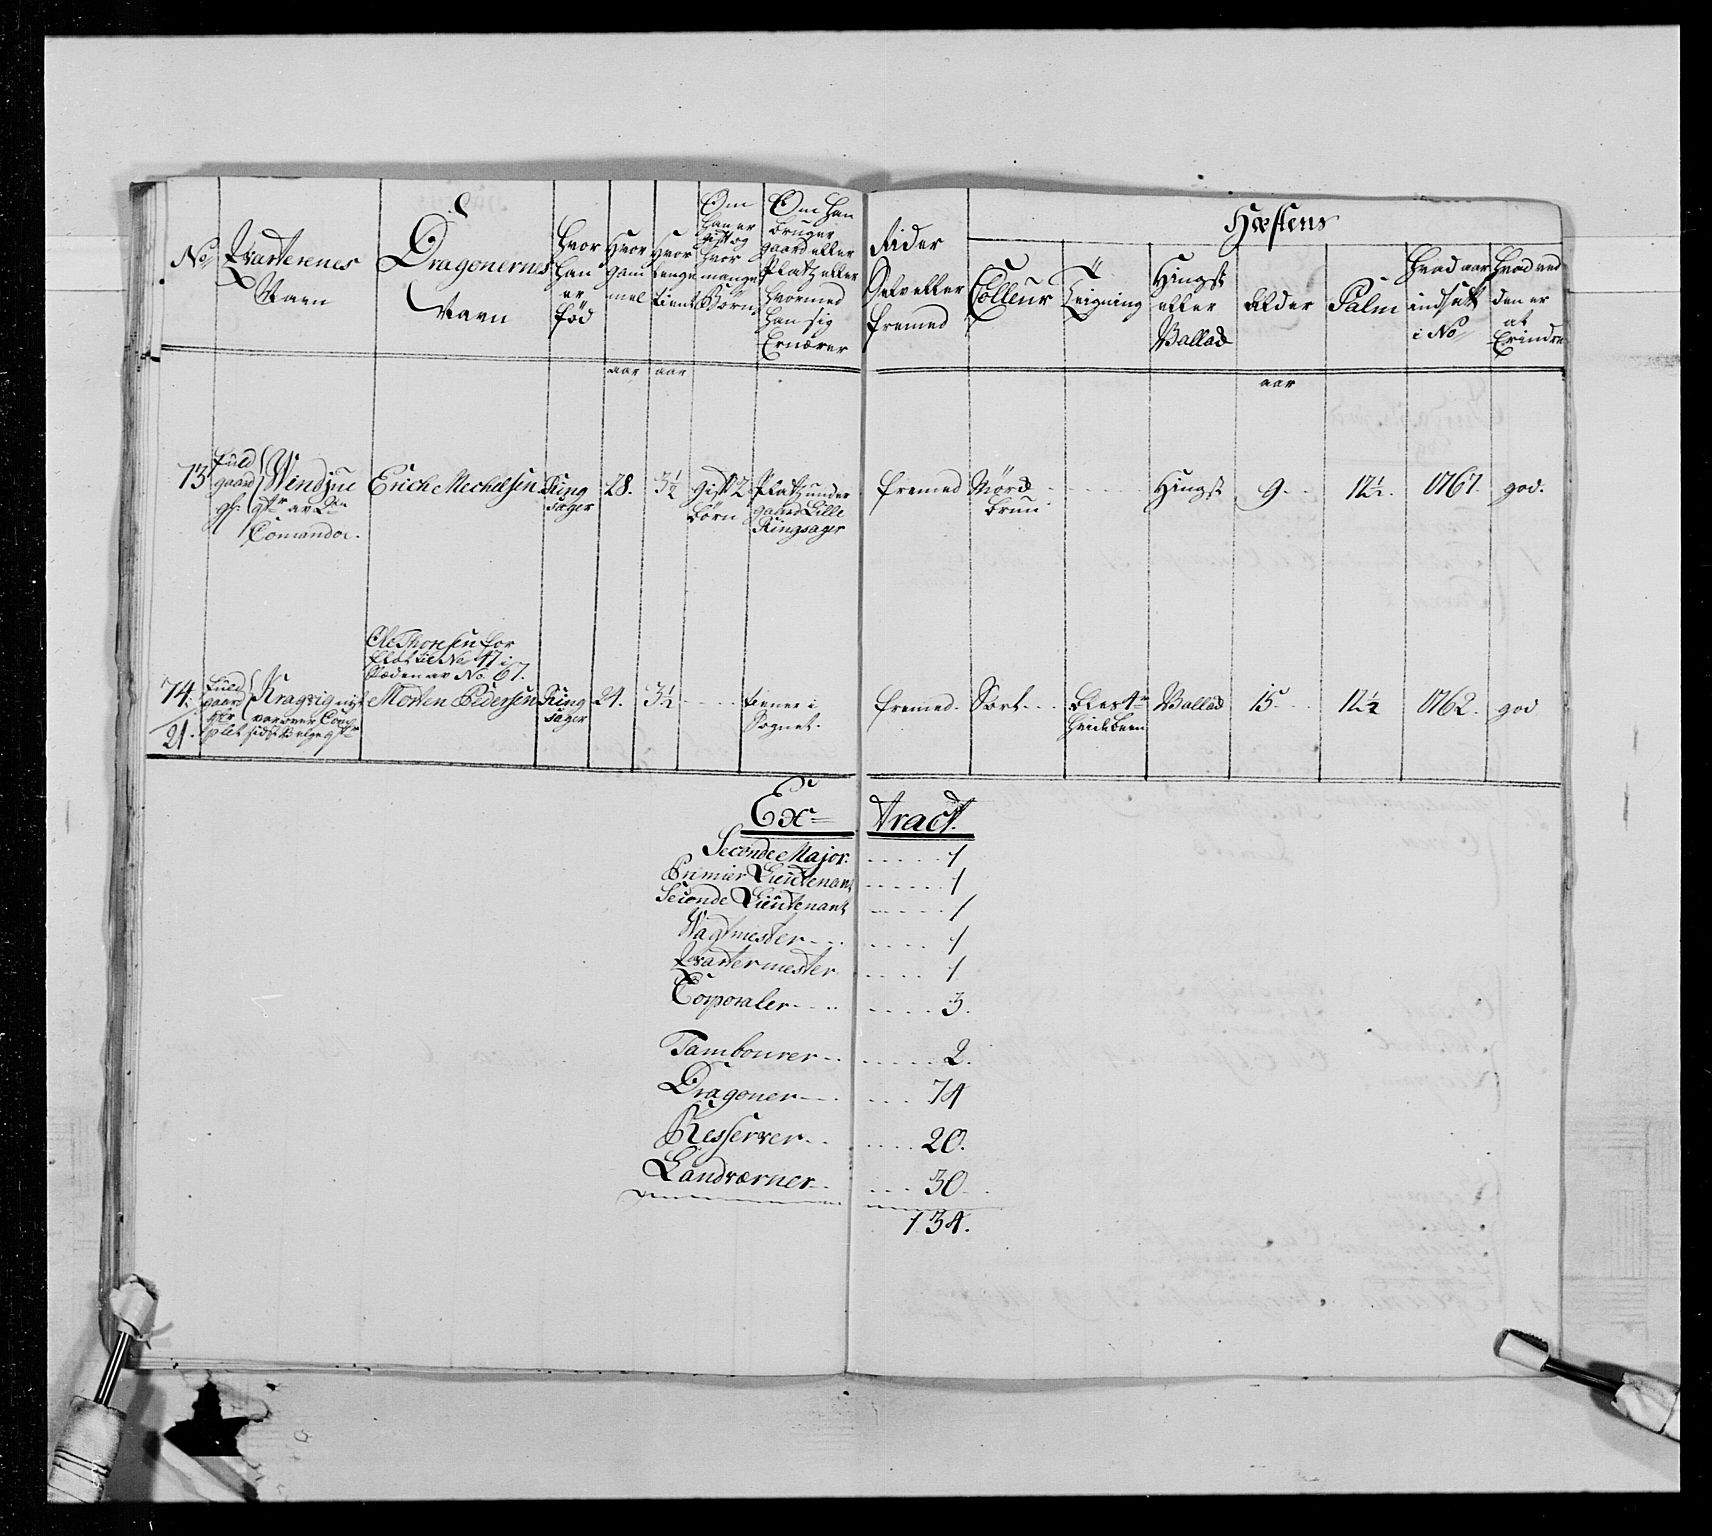 No
Qvarterenes
Navn
Dragonernes
Navn
Hvor
han
er
föd
Hvor
gam
mel
Hvor
lenge
tient
Om
han er
gift og
hvor
mange
Börn
Om han
bruger
gaard eller
Platz eller
hvormed
han sig
Ernærer
Rider
Selv eller
fremed
Hæstens
Colleur
Teigning
Hingst
eller
Vallach
Alder
Palm
Hvad aar
indsatt
i No
Hvad ved
den er
at
Erindre
aar
aar
aar
73
fuld
gaard
Windjue
Erich Mechelsen
Ring
sager
28.
3½
gift 2
Börn
Platz under
gaard Lille
Ringsager
fremed
Mörd
brun
Hingst
9
12½.
1767.
god.
Comandor.
Ole Thoresen for
flöt til No 47 i
Stæden av No. 67.
74.
fuld
gaard
Kragvig
Morten Pedersen
Ring
sager
24.
3½
tiener i
Sognet.
fremed.
Sort
Bles 4re
Hvide been
Vallach
15
12½
1762.
god
21.
Ex=
tract.
Seconde Major 1
Premier Lieutenant 1
Seconde Lieutenant 1
Vagtmester 1
Qvartermester 1
Corporaler 3.
Tambourer 2.
Dragoner 74
Resserver 20.
Landværner 30
134.